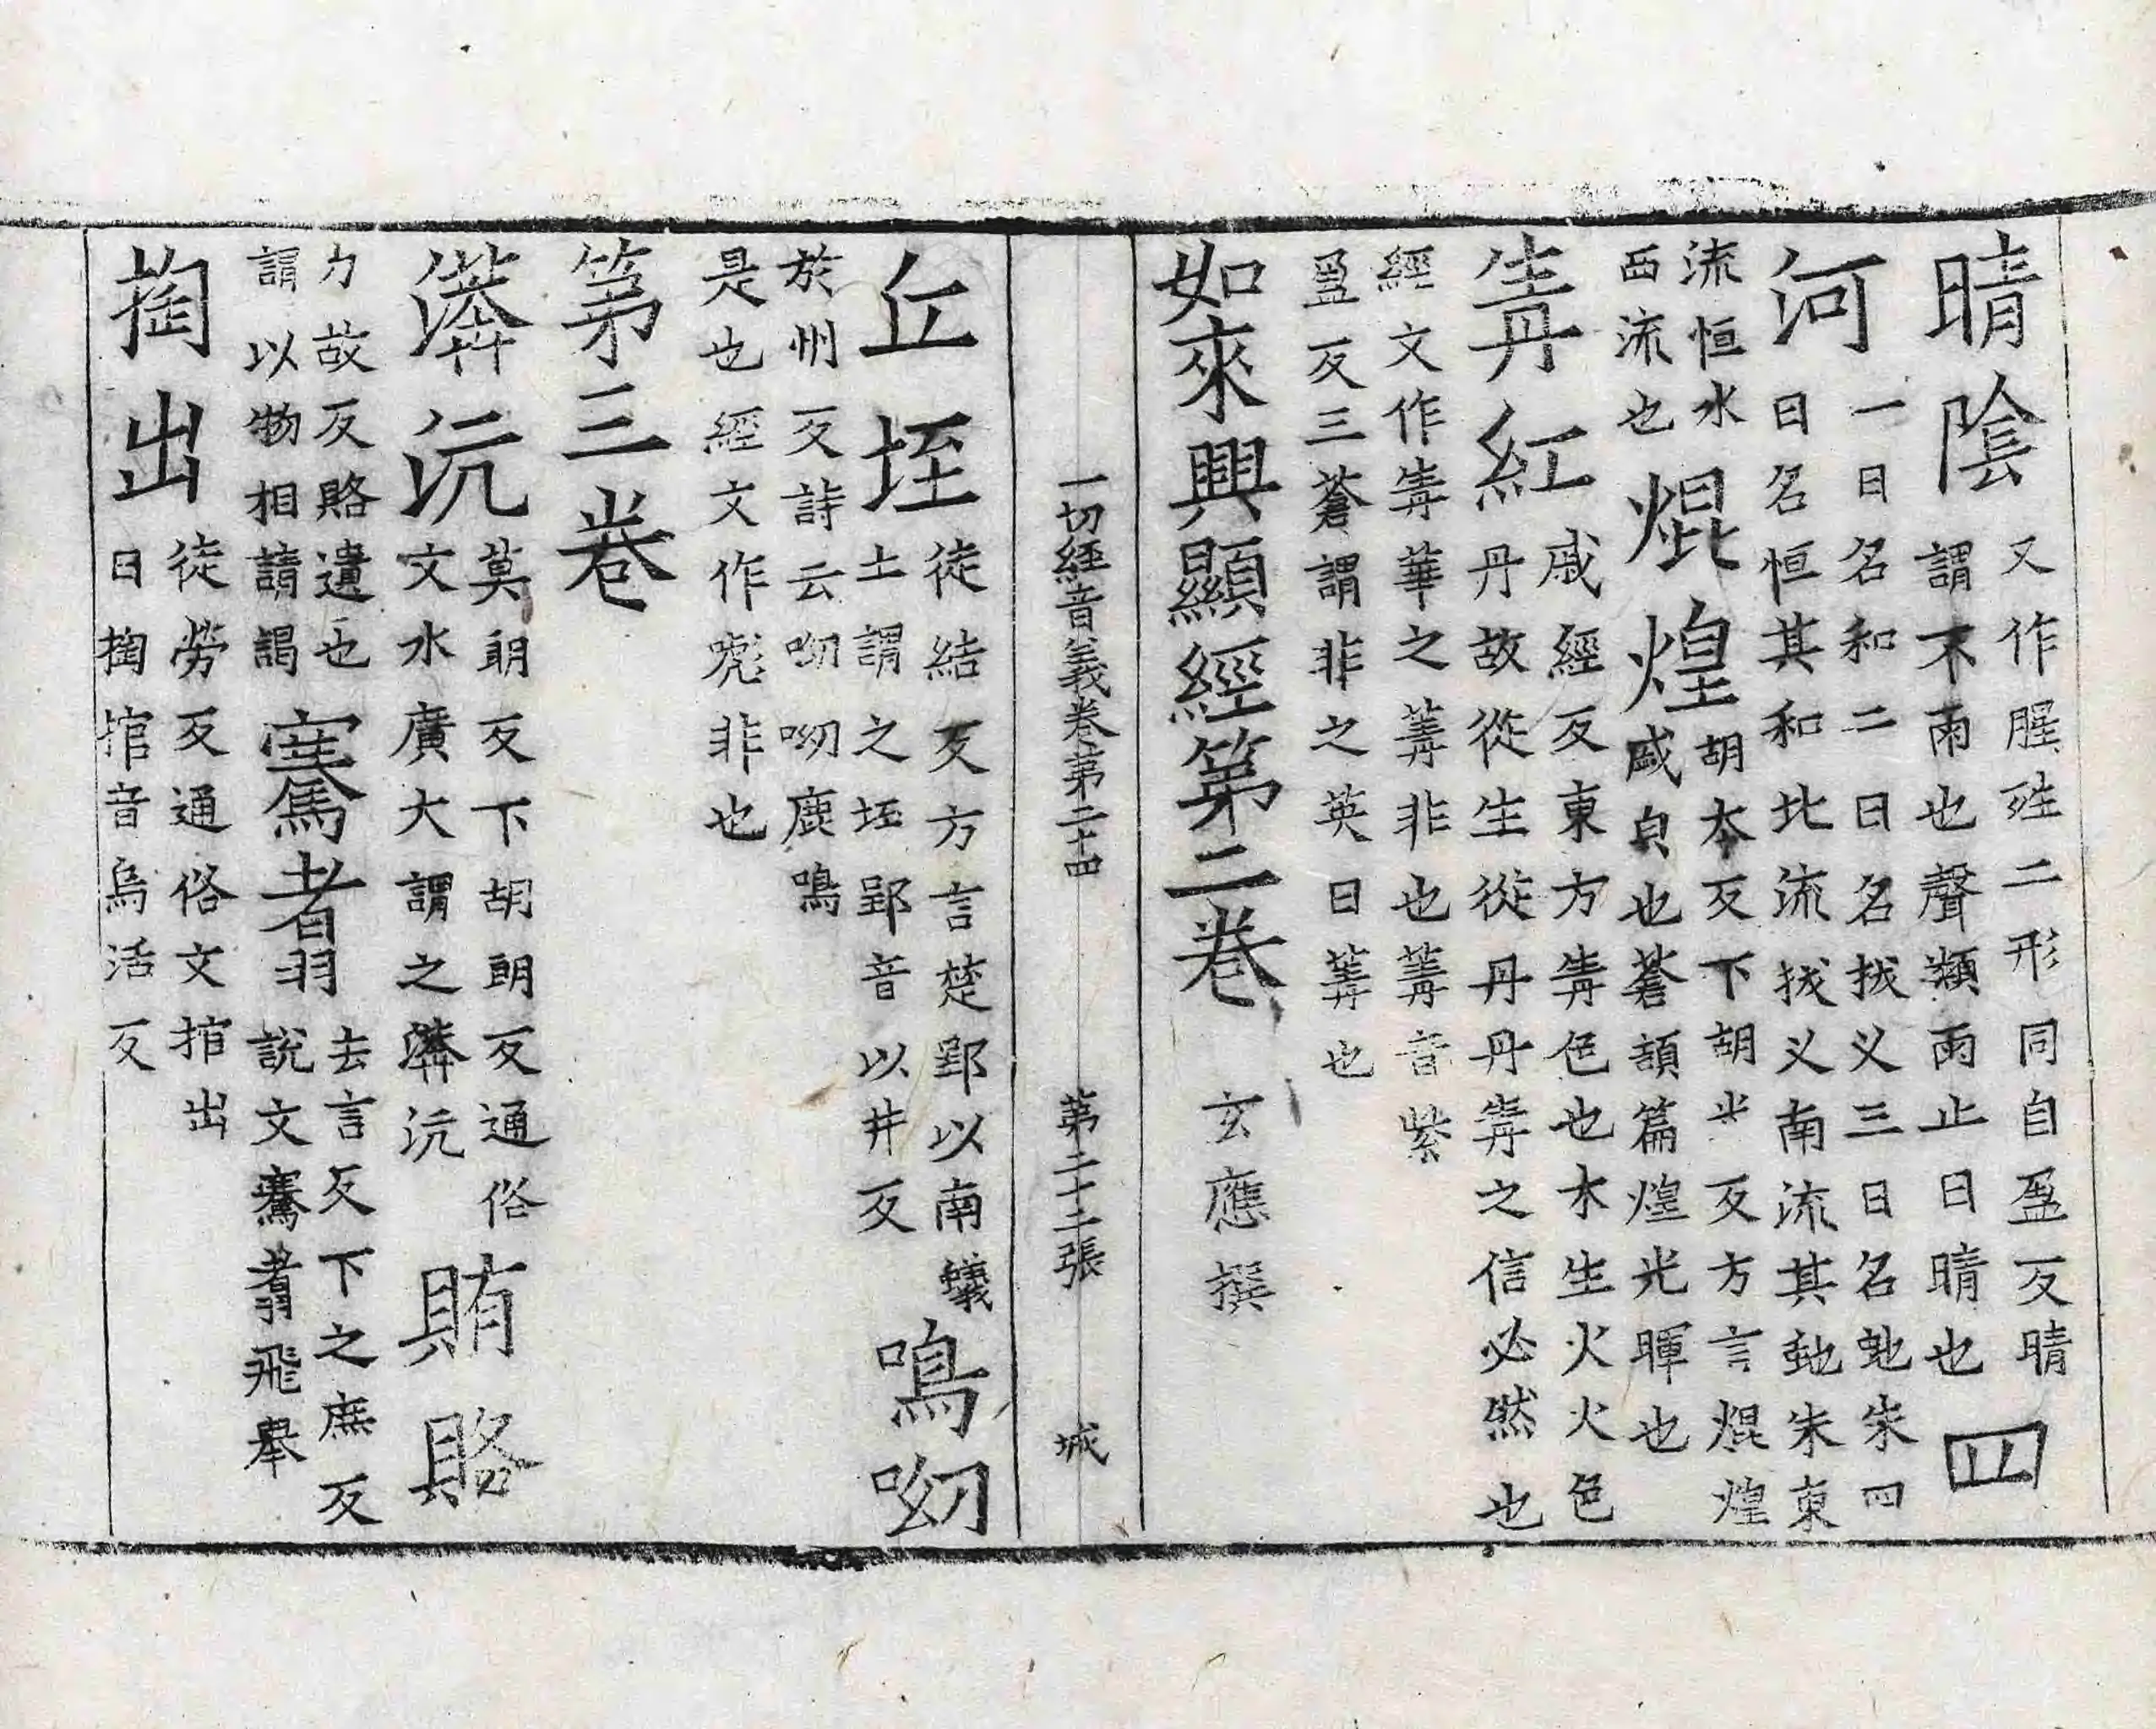 晴陰又作腥殅二形同自盈反晴
謂不雨也聲類雨止曰晴也四
河一曰名和二曰名拔义三曰名虵朱四
曰名恒其和北流拔义南流其虵朱東
流恒水
西流也焜煌胡本反下胡光反方言焜煌
盛皃也蒼頡篇煌光暉也
靑紅戚經反東方靑色也木生火火色
丹故從生從丹丹靑之信必然也
經文作靑華之菁非也菁音紫
盈反三蒼謂非之英曰菁也
如來興顯經第二卷 玄應撰
一切經音義卷第二十四 第二十二張 城
丘垤徒結反方言楚郢以南蟻
土謂之垤郢音以井反鳴呦
於州反詩云呦呦鹿鳴
是也經文作嘵非也
第三卷
漭沆莫朗反下胡朗反通俗
文水廣大謂之漭沆賄賂
力故反賂遺也
謂以物相請謁騫翥去言反下之庶反
說文騫翥飛舉
掏出徒勞反通俗文捾出
曰掏捾音烏活反